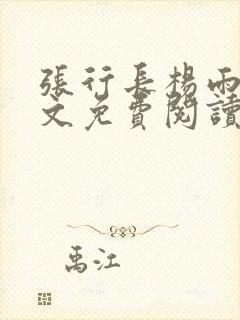 張行長楊雨
文免費閱讀
禹江